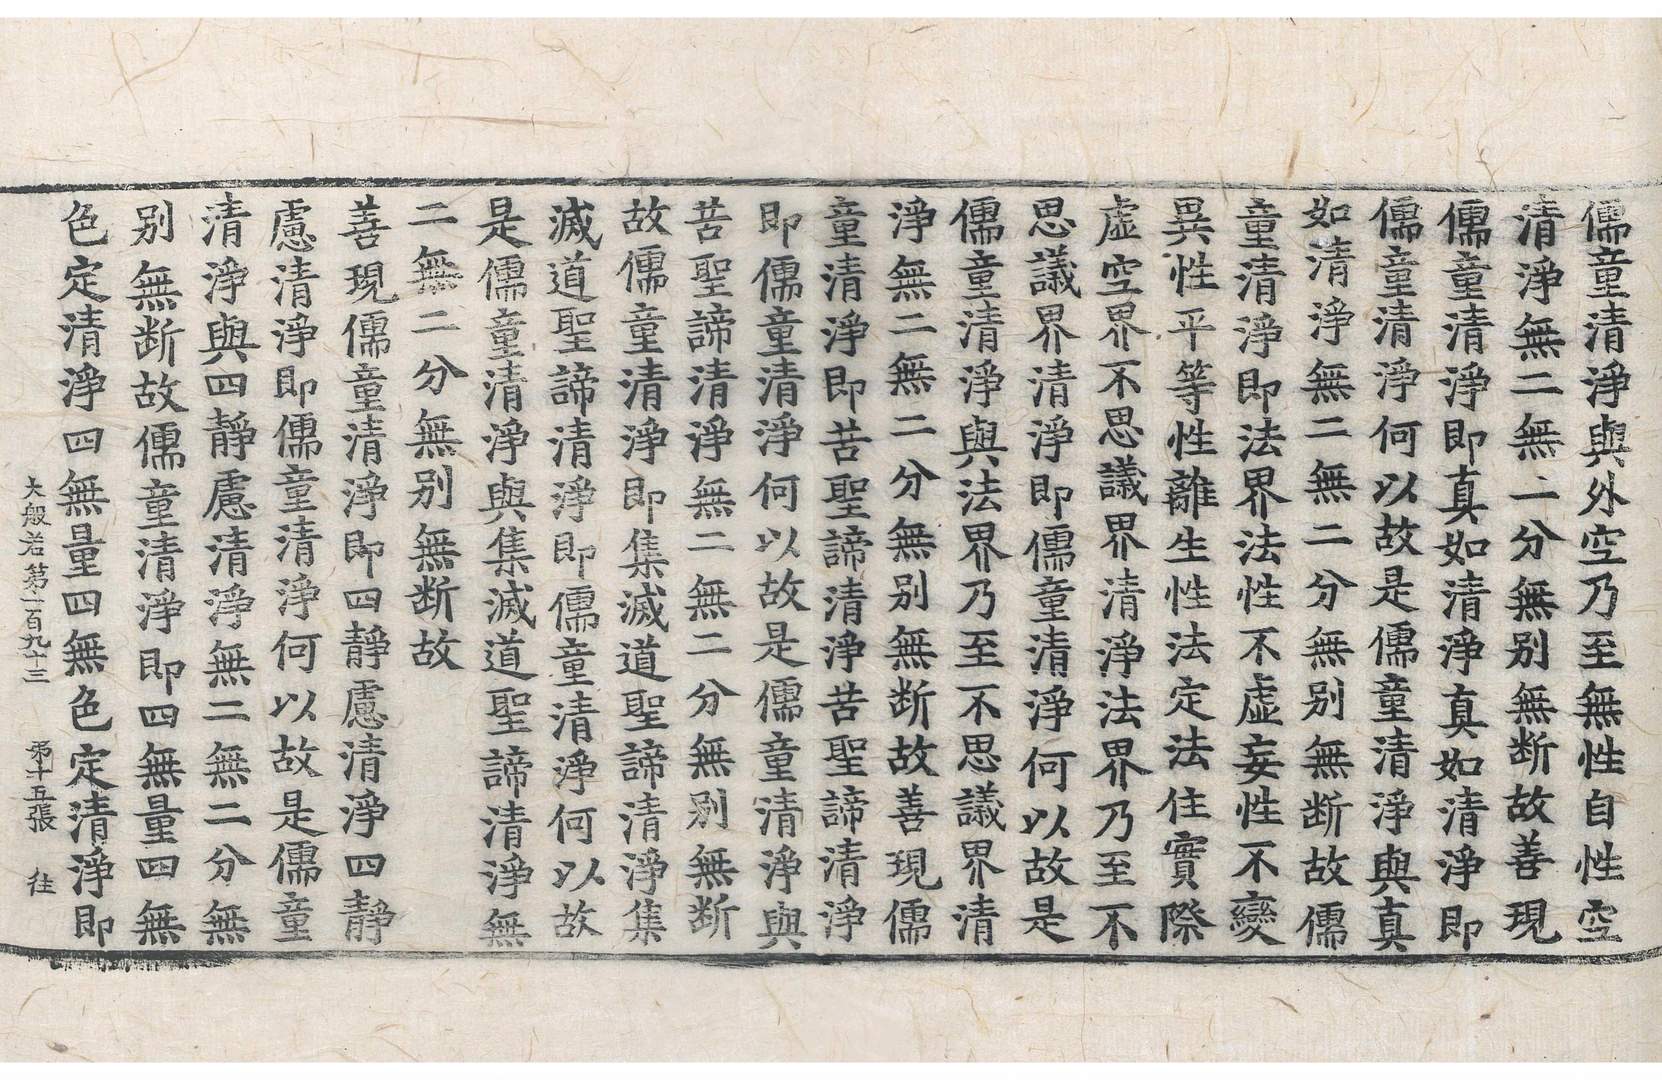 儒童清淨與外空乃至無性自性空
清淨無二無二分無別無断故善現
儒童清淨即真如清淨真如清淨即
儒童清淨何以故是儒童清淨與真
如清淨無二無二分無別無断故儒
童清淨即法界法性不虛妄性不變
異性平等性離生性法定法住實際
虛空界不思議界清淨法界乃至不
思議界清淨即儒童清淨何以故是
儒童清淨與法界乃至不思議界清
淨無二無二分無別無断故善現儒
童清淨即苦聖諦清淨苦聖諦清淨
即儒童清淨何以故是儒童清淨與
苦聖諦清淨無二無二分無別無断
故儒童清淨即集滅道聖諦清淨集
滅道聖諦清淨即儒童清淨何以故
是儒童清淨與集滅道聖諦清淨無
二無二分無別無断故
善現儒童清淨即四靜慮清淨四靜
慮清淨即儒童清淨何以故是儒童
清淨與四靜慮清淨無二無二分無
別無断故儒童清淨即四無量四無
色定清淨四無量四無色定清淨即
大般若第一百九十三 第十五張 往